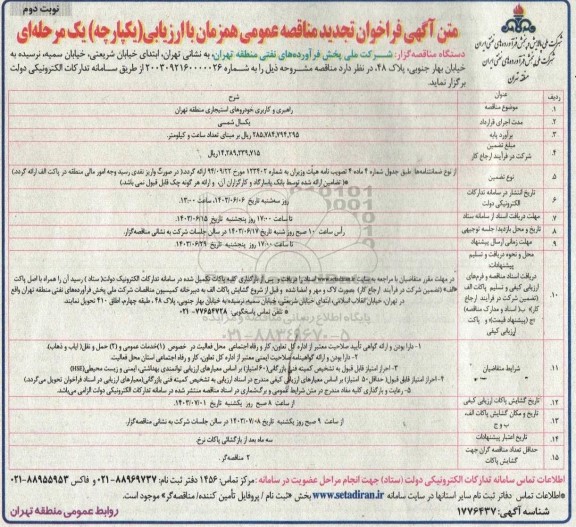 نوبت دوم
متن آگهی فراخوان تجدید مناقصه عمومی همزمان با ارزیابی(یکپارچه) یک مرحله‌ای
شرکت ملی پالایش و پخش فرآورده‌های نفتی ایران
شرکت ملی پخش فرآورده‌های نفتی ایران
منطقه تهران
دستگاه مناقصه‌گزار: شرکت ملی پخش فرآورده‌های نفتی منطقه تهران، به نشانی تهران، ابتدای خیابان شریعتی، خیابان سمیه، نرسیده به
خیابان بهار جنوبی، پلاک ۴۸، در نظر دارد مناقصه مشروحه ذیل را به شماره ۲۰۰۳۰۹۲۱۶۰۰۰۰۰۲۶ از طریق سامانه تدارکات الکترونیکی دولت
برگزار نماید.
ردیف عنوان شرح
۱ موضوع مناقصه راهبری و کاربری خودروهای استیجاری منطقه تهران
۲ مدت اجرای قرارداد یکسال شمسی
۳ برآورد پایه ۲۸۵,۷۸۴,۷۹۴,۲۹۵ ریال بر مبنای تعداد ساعت و کیلومتر.
۴ مبلغ تضمین شرکت در فرآیند ارجاع کار ۱۴,۲۸۹,۲۳۹,۷۱۵ ریال
۵ نوع تضمین از نوع ضمانتنامه‌ها طبق جدول شماره ۴ ماده ۴ تصویب نامه هیأت وزیران به شماره ۱۲۳۴۰۲ مورخ ۹۴/۰۹/۲۲ ارائه گردد.( در صورت واریز نقدی رسید وجه امور مالی منطقه در پاکت الف ارائه گردد)
( تضامین ارائه شده توسط بانک پاسارگاد و کارگزاران آن، و ارائه هر گونه چک قابل قبول نمی باشد)
۶ تاریخ انتشار در سامانه تدارکات الکترونیکی دولت روز سه‌شنبه تاریخ ۱۴۰۳/۰۶/۰۶، ساعت ۱۳:۰۰.
۷ مهلت دریافت اسناد از سامانه ستاد تا ساعت ۱۷:۰۰ روز پنجشنبه تاریخ ۱۴۰۳/۰۶/۱۵
۸ تاریخ و محل بازدید/ جلسه توجیهی رأس ساعت ۱۰ صبح روز شنبه تاریخ ۱۴۰۳/۰۶/۱۷ در سالن جلسات شرکت به نشانی مناقصه‌گزار.
۹ مهلت زمانی ارسال پیشنهاد تا ساعت ۱۷:۰۰ روز پنجشنبه تاریخ ۱۴۰۳/۰۶/۲۹
۱۰ محل و نحوه دریافت و تسلیم پیشنهادات
دریافت اسناد مناقصه و فرم‌های ارزیابی کیفی و تسلیم پاکات الف (تضمین شرکت در فرآیند ارجاع کار)، ب( اسناد و مدارک مناقصه) ج (پیشنهاد قیمت) و پاکت ارزیابی کیفی
در مهلت مقرر متقاضیان با مراجعه به سایت www.setadiran.ir اسناد را دریافت و پس از بارگذاری کلیه پاکات تکمیل شده در سامانه تدارکات الکترونیک دولت( ستاد ) رسید آن را همراه با اصل پاکت
«الف» (تضمین شرکت در فرآیند ارجاع کار) بصورت لاک و مهر و امضا شده و قبل از شروع گشایش پاکات الف به دبیرخانه کمیسیون مناقصات شرکت ملی پخش فرآورده‌های نفتی منطقه تهران واقع
در تهران، خیابان انقلاب اسلامی، ابتدای خیابان شریعتی، خیابان سمیه، نرسیده به خیابان بهار جنوبی، پلاک ۴۸، طبقه چهارم، اطاق ۴۱۰ تحویل نمایند.
تلفن تماس پاسخگویی ۷۷۶۵۴۷۲۸-۰۲۱
۱۱ شرایط متقاضیان
۱- دارا بودن و ارائه گواهی تأیید صلاحیت معتبر از اداره کل تعاون، کار و رفاه اجتماعی محل فعالیت در خصوص ۱)خدمات عمومی و ۲) حمل و نقل( ایاب و ذهاب).
۲- دارا بودن و ارائه گواهینامه صلاحیت ایمنی معتبر از اداره کل تعاون، کار و رفاه اجتماعی استان محل فعالیت.
۳- احراز امتیاز قابل قبول به تشخیص کمیته فنی بازرگانی(۶۰ امتیاز) بر اساس معیارهای ارزیابی توانمندی بهداشتی، ایمنی و زیست محیطی(HSE)
۴- احراز امتیاز قابل قبول( حداقل ۵۰ امتیاز) بر اساس معیارهای ارزیابی کیفی مندرج در اسناد ارزیابی به تشخیص کمیته فنی بازرگانی(معیارهای ارزیابی در اسناد فراخوان تحویل می‌گردد).
۵- رعایت و بارگذاری کلیه مفاد مندرج در متن شرایط عمومی و برگ‌شماری در اسناد مناقصه منتشر شده در سامانه تدارکات الکترونیکی دولت الزامی می‌باشد.
۱۲ تاریخ گشایش پاکات ارزیابی کیفی از ساعت ۸ صبح روز یکشنبه تاریخ ۱۴۰۳/۰۷/۰۱
۱۳ تاریخ و مکان گشایش پاکات الف، ب و ج از ساعت ۹ صبح روز یکشنبه تاریخ ۱۴۰۳/۰۷/۰۸ در سالن جلسات شرکت به نشانی مناقصه‌گزار.
۱۴ تاریخ اعتبار پیشنهادات سه ماه بعد از بازگشائی پاکات نرخ
۱۵ حداقل تعداد مناقصه گران جهت گشایش پاکات ۲ مناقصه‌گر.
اطلاعات تماس سامانه تدارکات الکترونیکی دولت (ستاد) جهت انجام مراحل عضویت در سامانه: مرکز تماس: ۱۴۵۶ دفتر ثبت نام: ۸۸۹۶۹۷۳۷-۰۲۱ و فاکس ۸۸۹۵۵۹۵۳-۰۲۱
اطلاعات تماس دفاتر ثبت نام سایر استانها در سایت سامانه www.setadiran.ir بخش «ثبت نام / پروفایل تأمین کننده/ مناقصه‌گر» موجود است.
شناسه آگهی: ۱۷۷۶۴۳۷
روابط عمومی منطقه تهران
۰۲۱-۸۸۳۴۹۶۷۰-۵